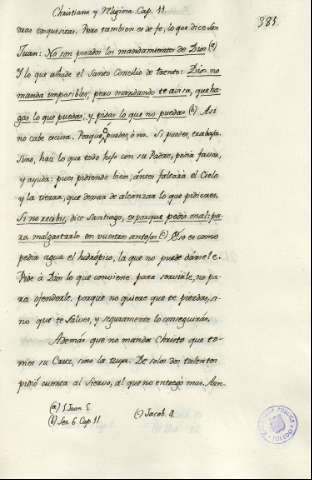 Christiano y Religioso. Cap. 11.
383.
tras conquistas. Pero tambien es de fe, lo que dice San
Juan: No son pesados los mandamientos de Dios (a)
Y lo que añade el Santo Concilio de trento: Dios no
manda imposibles, pero mandando te avisa, que ha-
gas lo que puedas, y pidas lo que no puedas. (b) Asi
no cabe escusa. Porque, ò puedes, ò no. Si puedes, trabaja.
Sino, haz lo que todo hijo con su Padre, pedir favor,
y ayuda: pues pidiendo bien, antes faltarà el Cielo
y la tierra, que dexar de alcanzar lo que pidieres.
Si no recibis, dice Santiago, es porque pedis mal: pa-
ra malgastarlo en vuestros antojos (c) Eso es como
pedir agua el hidropico, la que no puede darsele.
Pide à Dios lo que conviene para servirle, no pa-
ra ofenderle, porque no quiere que te pierdas, si-
no que te salves, y seguramente lo conseguiràs.
Ademàs que no manda Christo que to-
mes su Cruz, sino la tuya. De solos dos talentos
pidiò cuenta al Siervo, al que no entregò mas. Aun
(a) 1. Juan 5.
(b) Ses. 6. Cap. 11.
(c) Jacob. 4.